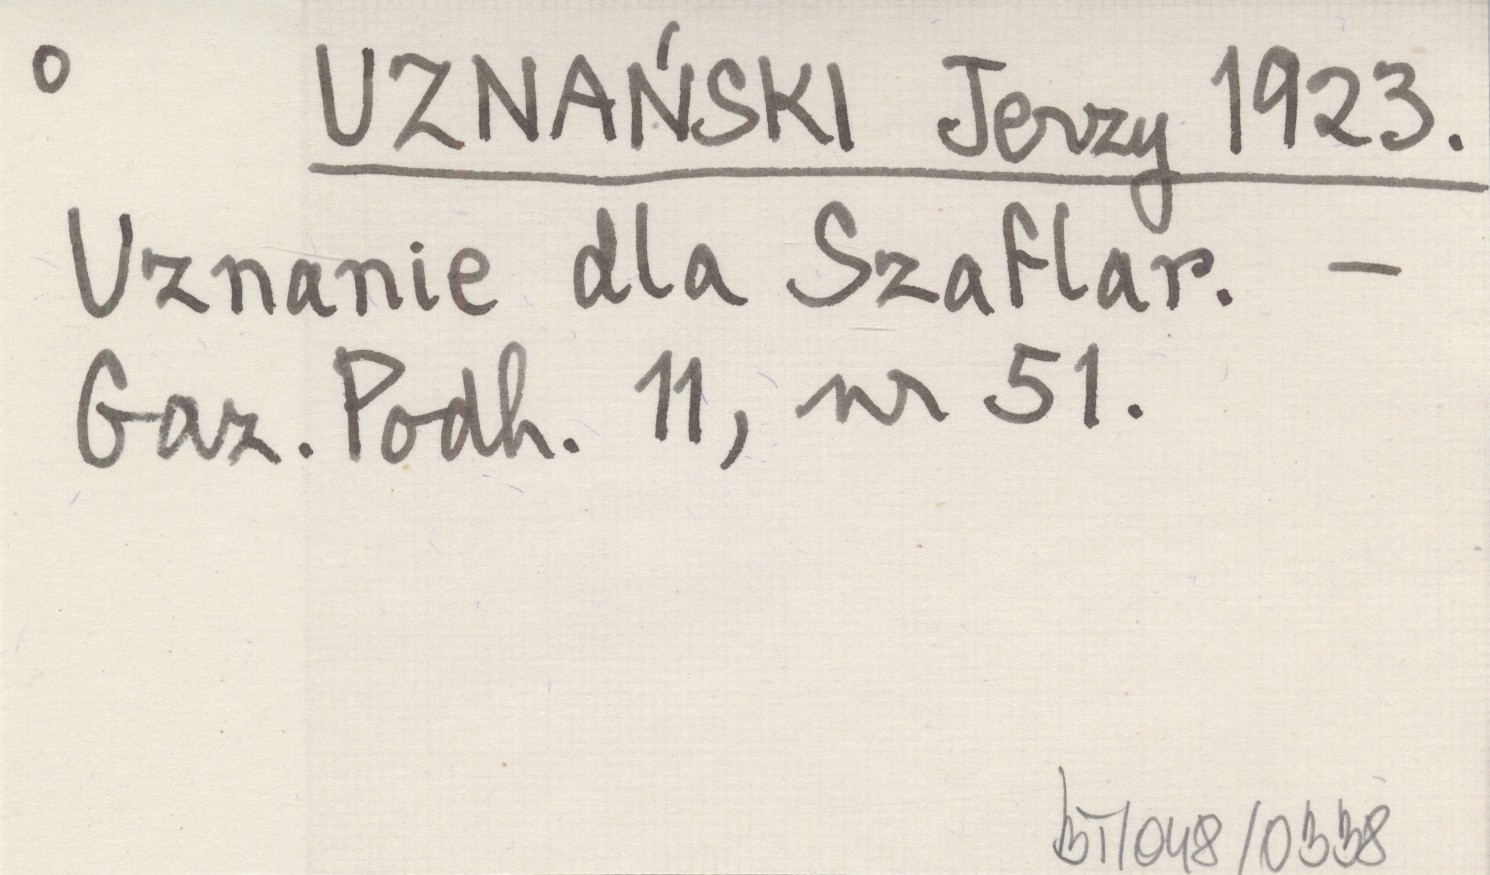 o UZNAŃSKI Jerzy 1923.
Uznanie dla Szaflar. –
Gaz. Podh. 11, nr 51.
BT/048/0338